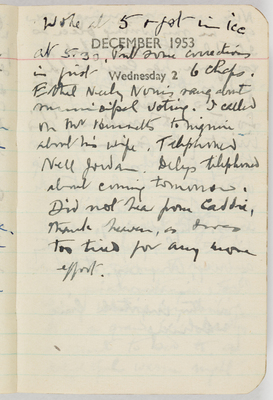 Woke at 5 & got in ice
at 5.30. Put some corrections
DECEMBER 1953
in first 6 chaps.
Wednesday 2
Ethel Nully Norris rang about
municipal voting. I called
on Mr to inquire
about his wife. Telephoned
Nell Jordan. Delys telephoned
about coming tomorrow.
Did not hear from Caddie,
thank heaven, as I was
too tired for any more
effort.